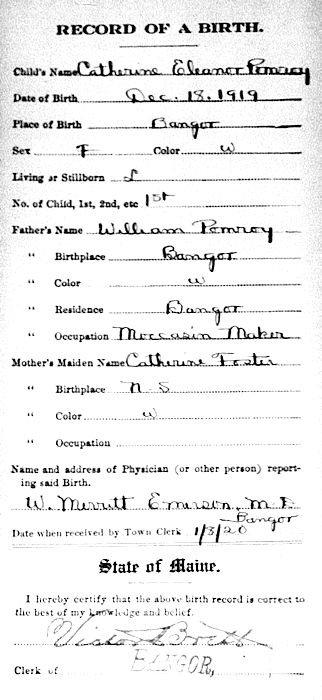 RECORD OF A BIRTH.
Child's Name Catherine Eleanor Pomroy
Date of Birth Dec. 18. 1919
Place of Birth Bangor
Sex F Color W
Living or Stillborn L
No. of Child, 1st, 2nd, etc 1st
Father's Name William Pomroy
" Birthplace Bangor
" Color W
" Residence Bangor
" Occupation Moccasin Maker
Mother's Maiden Name Catherine Foster
" Birthplace N. S
" Color W
" Occupation
Name and address of Physician (or other person) report-
ing said Birth.
W. Merritt Emerson, M. D.
Bangor
Date when received by Town Clerk 1/3/20
State of Maine.
I hereby certify that the above birth record is correct to
the best of my knowledge and belief.
Victor
Clerk of BANGOR,